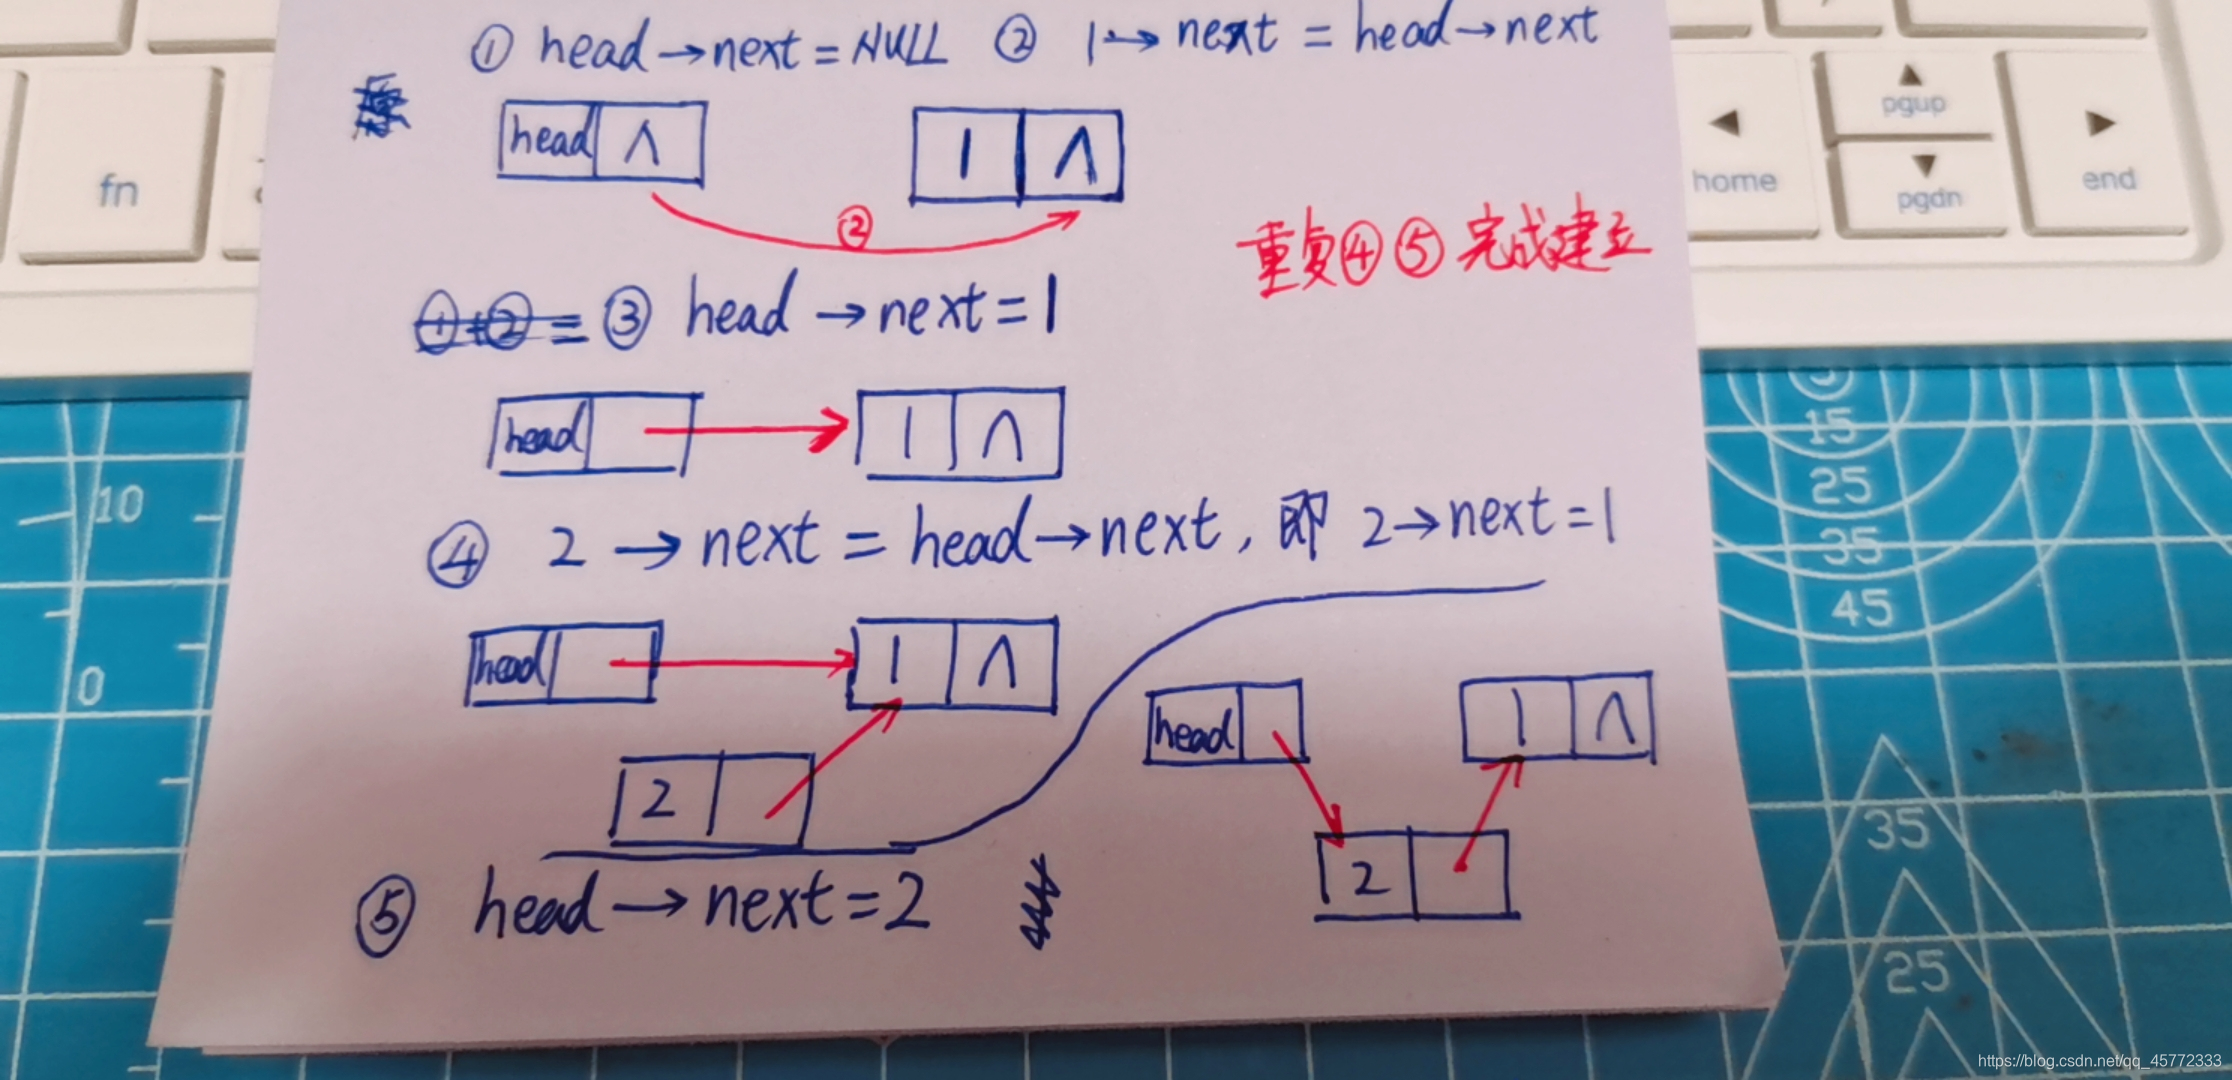 ① head→next=NULL ② 1→next=head→next
head ∧ 1 ∧
②
重复④⑤完成建立
①+②= ③ head→next=1
head 1 ∧
④ 2→next=head→next, 即 2→next=1
head 1 ∧
2
head 1 ∧
2
⑤ head→next=2
fn
home
pgup
pgdn
end
10
0
15
25
35
45
35
25
https://blog.csdn.net/qq_45772333